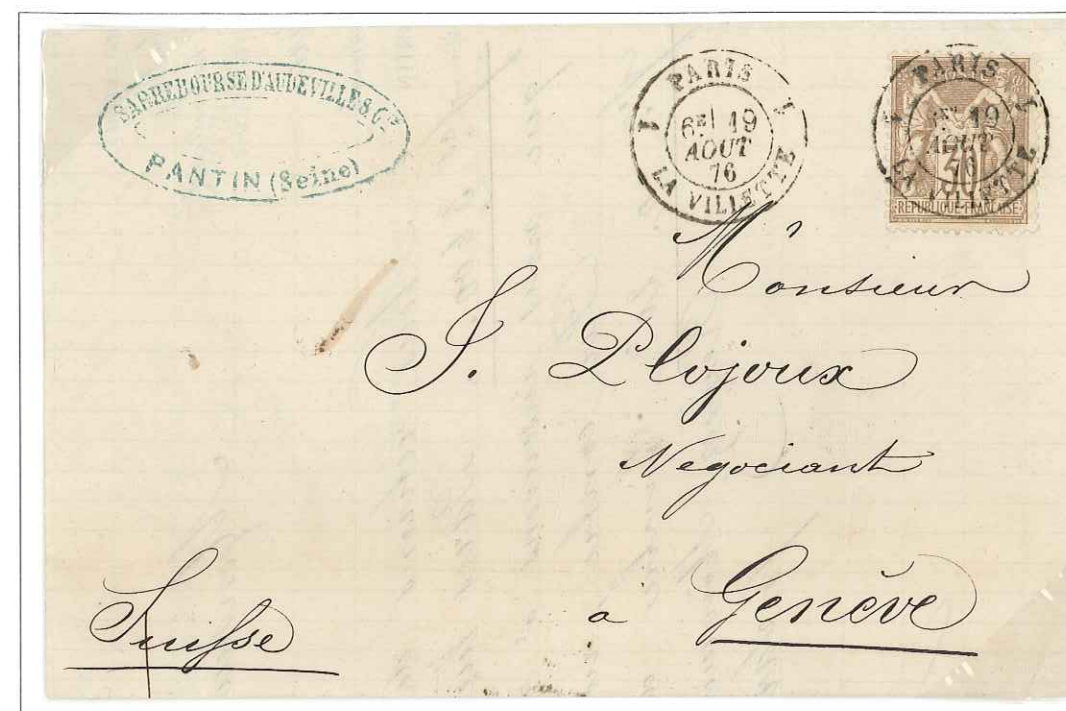 SARREBOURSE D'AUDEVILLE & Cie
PANTIN (Seine)
PARIS
1 1
6E/ 19
AOUT
76
LA VILLETTE
PARIS
1 1
6E/ 19
AOUT
76
LA VILLETTE
30
REPUBLIQUE FRANÇAISE
Mr
Monsieur
J. Plojoux
Negociant
a Genève
Suisse